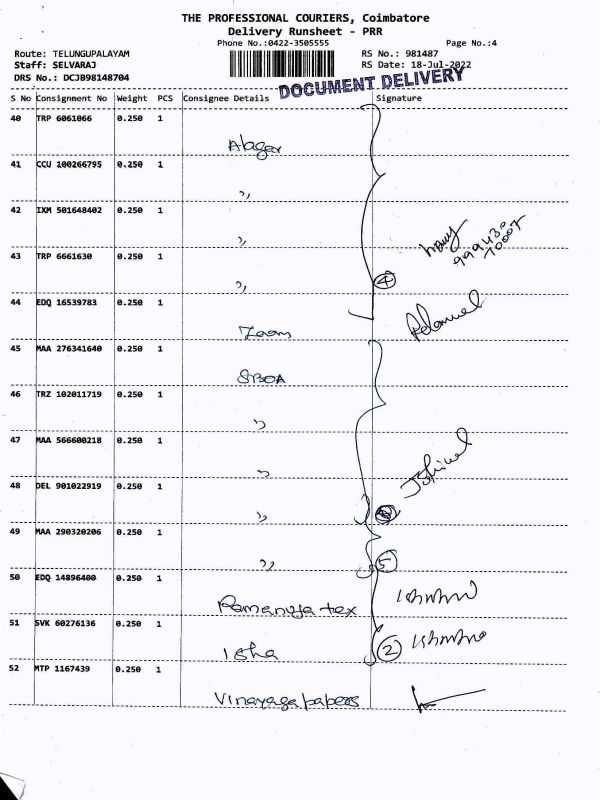 THE PROFESSIONAL COURIERS, Coimbatore
Delivery Runsheet - PRR
Phone No.:0422-3505555 Page No.:4
Route: TELUNGUPALAYAM RS No.: 981487
Staff: SELVARAJ RS Date: 18-Jul-2022
DRS No.: DCJB98148704
DOCUMENT DELIVERY
S No Consignment No Weight PCS Consignee Details Signature
40 TRP 6061066 0.250 1
Alagar
41 CCU 100266795 0.250 1
,,
42 IXM 501648402 0.250 1
,,
43 TRP 6661630 0.250 1
,, 4
44 EDQ 16539783 0.250 1
45 MAA 276341640 0.250 1
SBOA
46 TRZ 102011719 0.250 1
,,
47 MAA 566600218 0.250 1
,,
48 DEL 901022919 0.250 1
,,
49 MAA 290320206 0.250 1
,, 5
50 EDQ 14896400 0.250 1
Ramanuja tex
51 SVK 60276136 0.250 1
Isha 2
52 MTP 1167439 0.250 1
Vinayaga papers